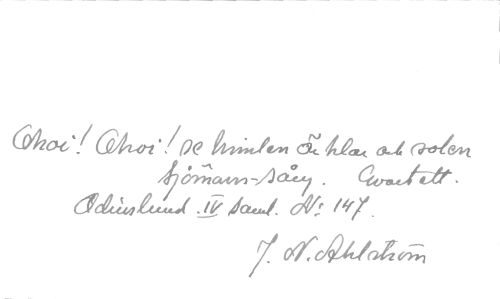 Ohoi! Ohoi! se himlen är klar och solen
Sjömans-sång. Qvartett.
Odinslund. IV saml. No: 147.
J. N. Ahlström